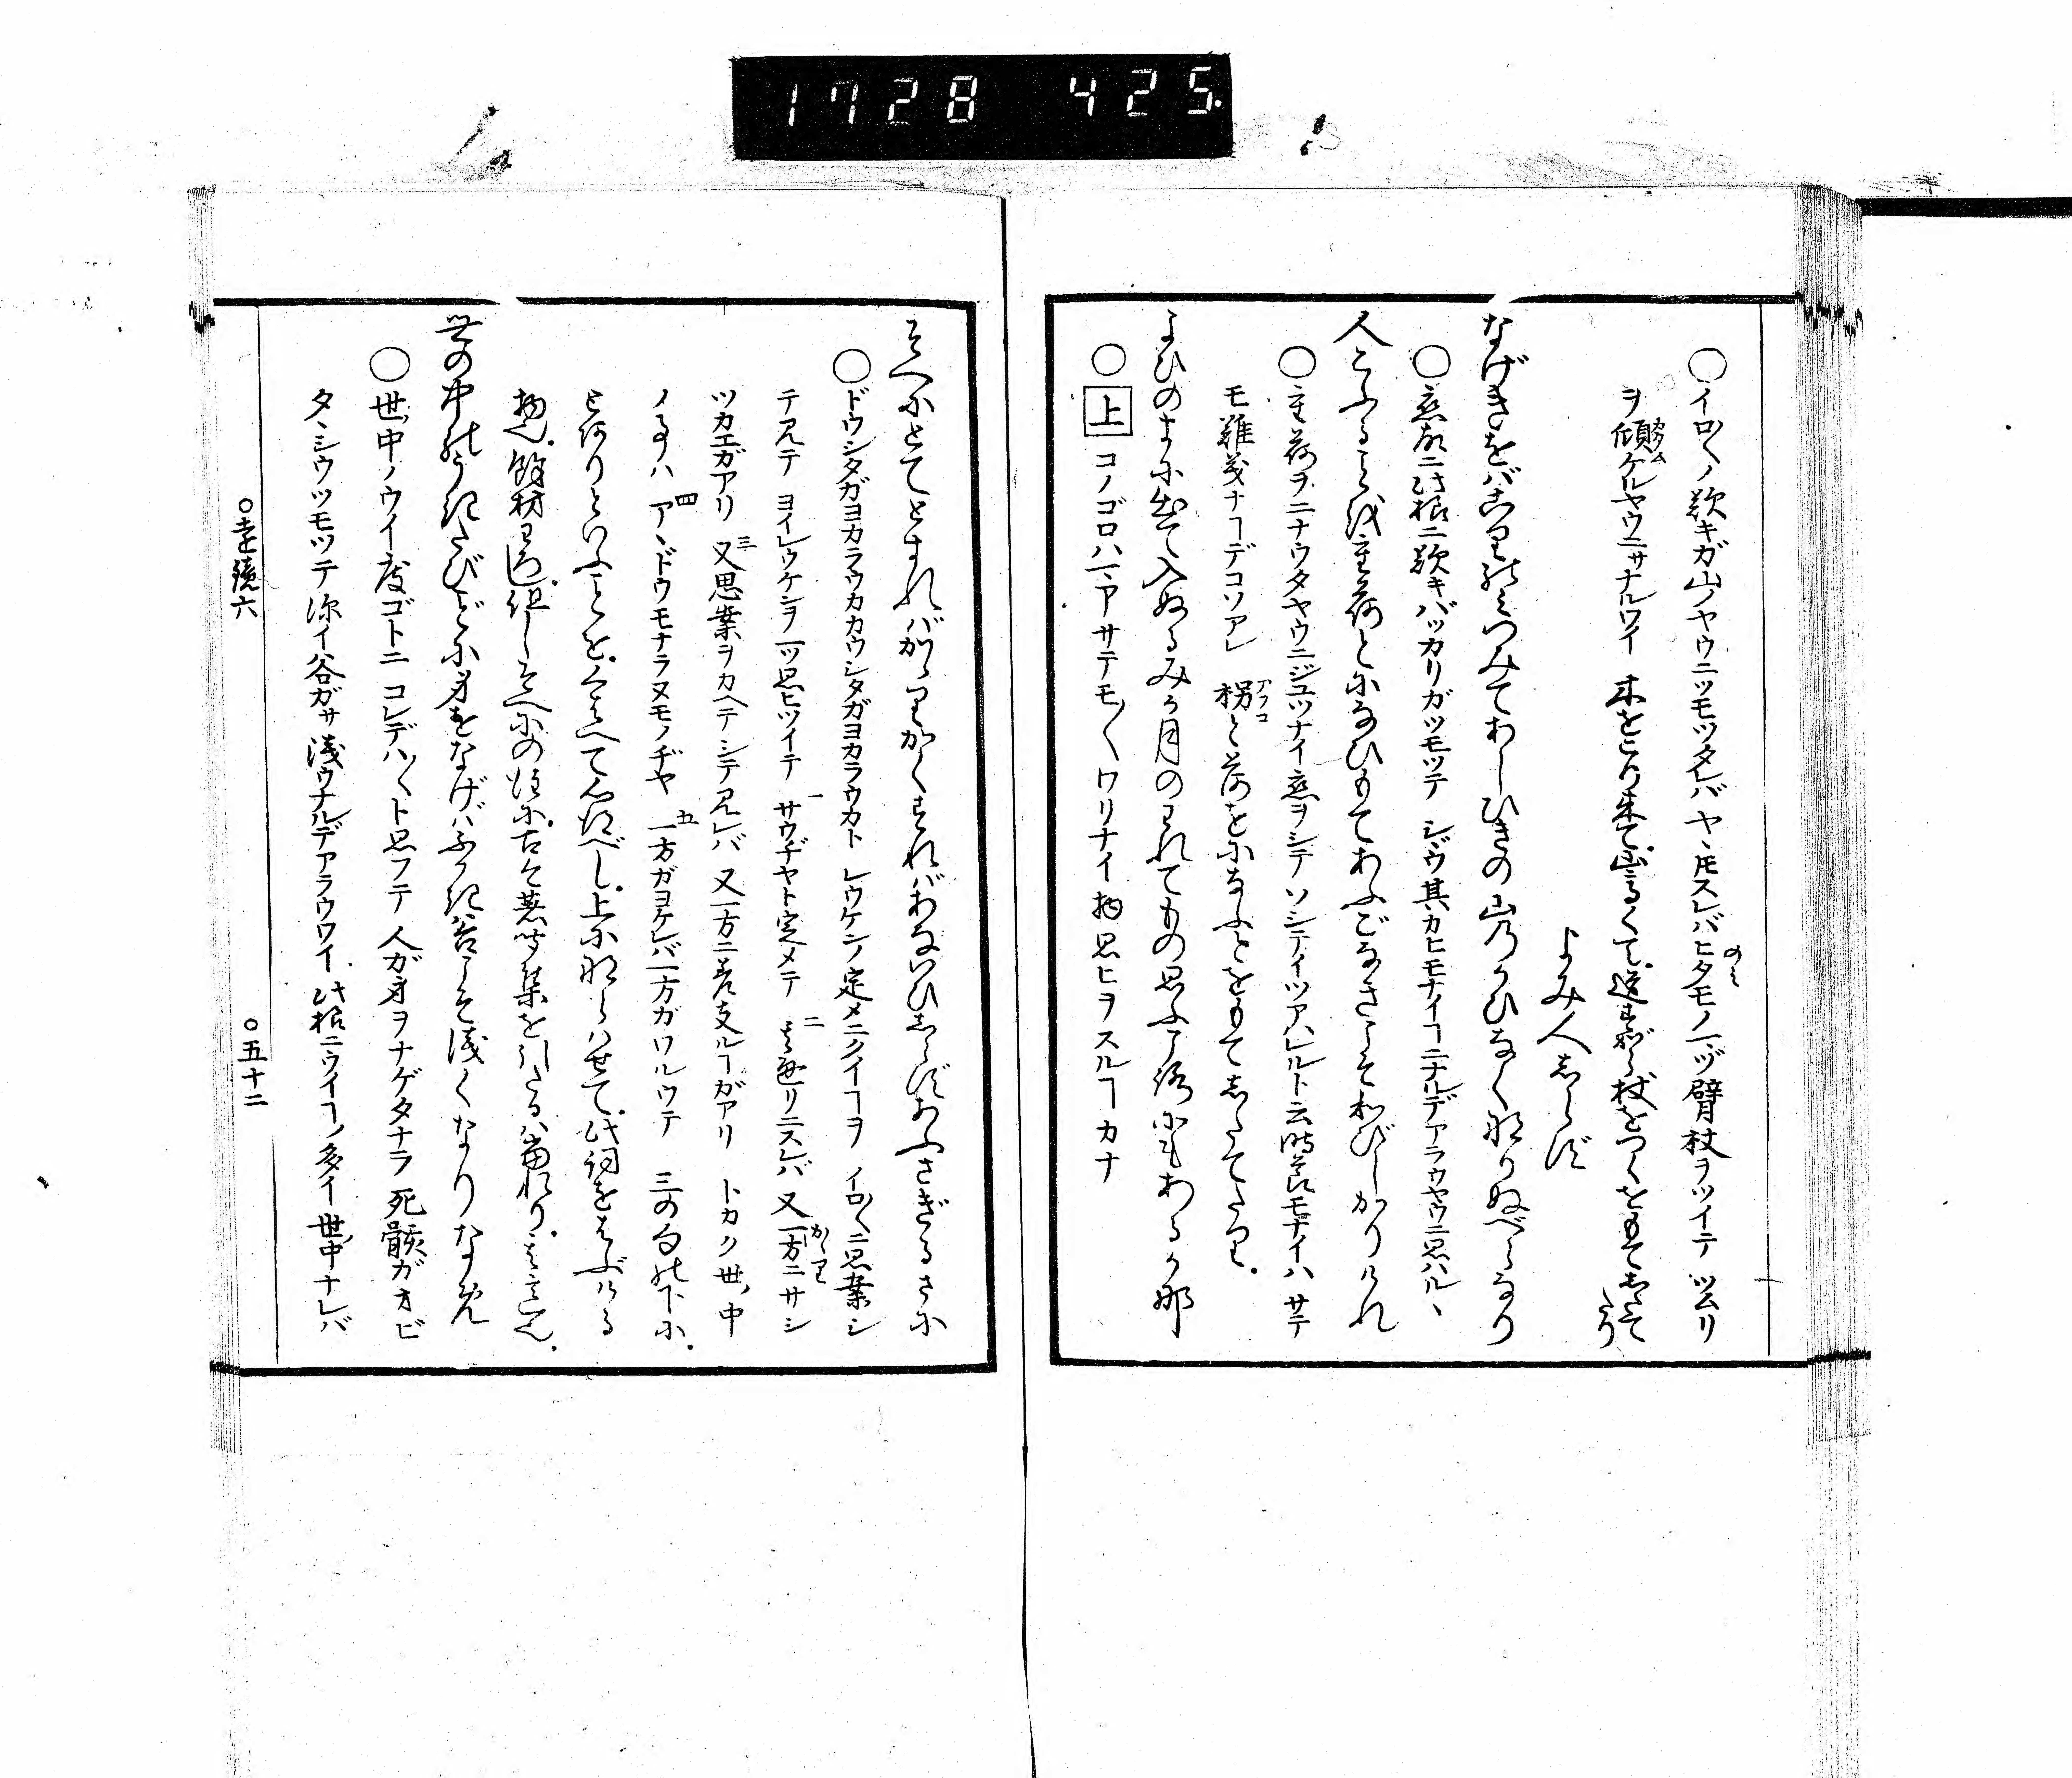 1728 425
○イロ〳〵ノ歎キガ山ノヤウニツモツタレバヤヽモスレバヒタモノ一ヅ臂杖ヲツイテツムリ
ヲ傾ケルヤウニサナルワイ 木をこり来て山高くて道すがら杖をつくをもてしたてたり
よみ人しらず
なげきをばこりのみつみてあしひきの山のかひなくなりぬべらなり
○恋故ニ此様ニ歎キバッカリガツモツテ ジヅウ其カヒモナイヿニナルデアラウヤウニ思ハルヽ
人こふることを重荷とになひもてあふごなきこそわびしかりけれ
○重荷ヲニナウタヤウニジユツナイ恋ヲシテソシテイツアハレルト云時節モナイハサテ
モ難義ナヿデコソアレ 枴と荷をになふとをもてしたてたり
よひのまに出て入ぬるみか月のわれてもの思ふ頃にもあるか那
○上 コノゴロハ アサテモ〳〵ワリナイ物思ヒヲスルヿカナ
そへにとてとすればかゝりかくすればあないひしらずあふさきるさに
○ドウシタガヨカラウカカウシタガヨカラウカト レウケンノ定メニクイヿヲ イロ〳〵ニ思案シ
テ見テ ヨイレウケンヲ一ツ思ヒツイテ 一サウヂヤト定メテ 二其通リニスレバ 又一方ニサシ
ツカエガアリ 三又思案ヲカヘテシテ見レバ 又一方ニ差支ルヿガアリ トカク世ノ中
ノ事ハ 四アヽドウモナラヌモノヂヤ 五一方ガヨケレバ一方ガワルウテ 三の句の下に
となりといふことをくはへて心得べし 上にならはせて此詞をはぶける
物也 餘材わろし 但しそへにの注に古今著聞集を引たるは當れり
世の中のうきたびごとに身をなげはふかき谷こそ浅くなりなめ
○世ノ中ノウイ度ゴトニ コレデハ〳〵ト思フテ 人ガ身ヲナゲタナラ 死骸ガオビ
タヽシウツモツテ 深イ谷ガサ 浅ウナルデアラウワイ 此様ニウイヿノ多イ世ノ中ナレバ
○遠鏡六
○五十二